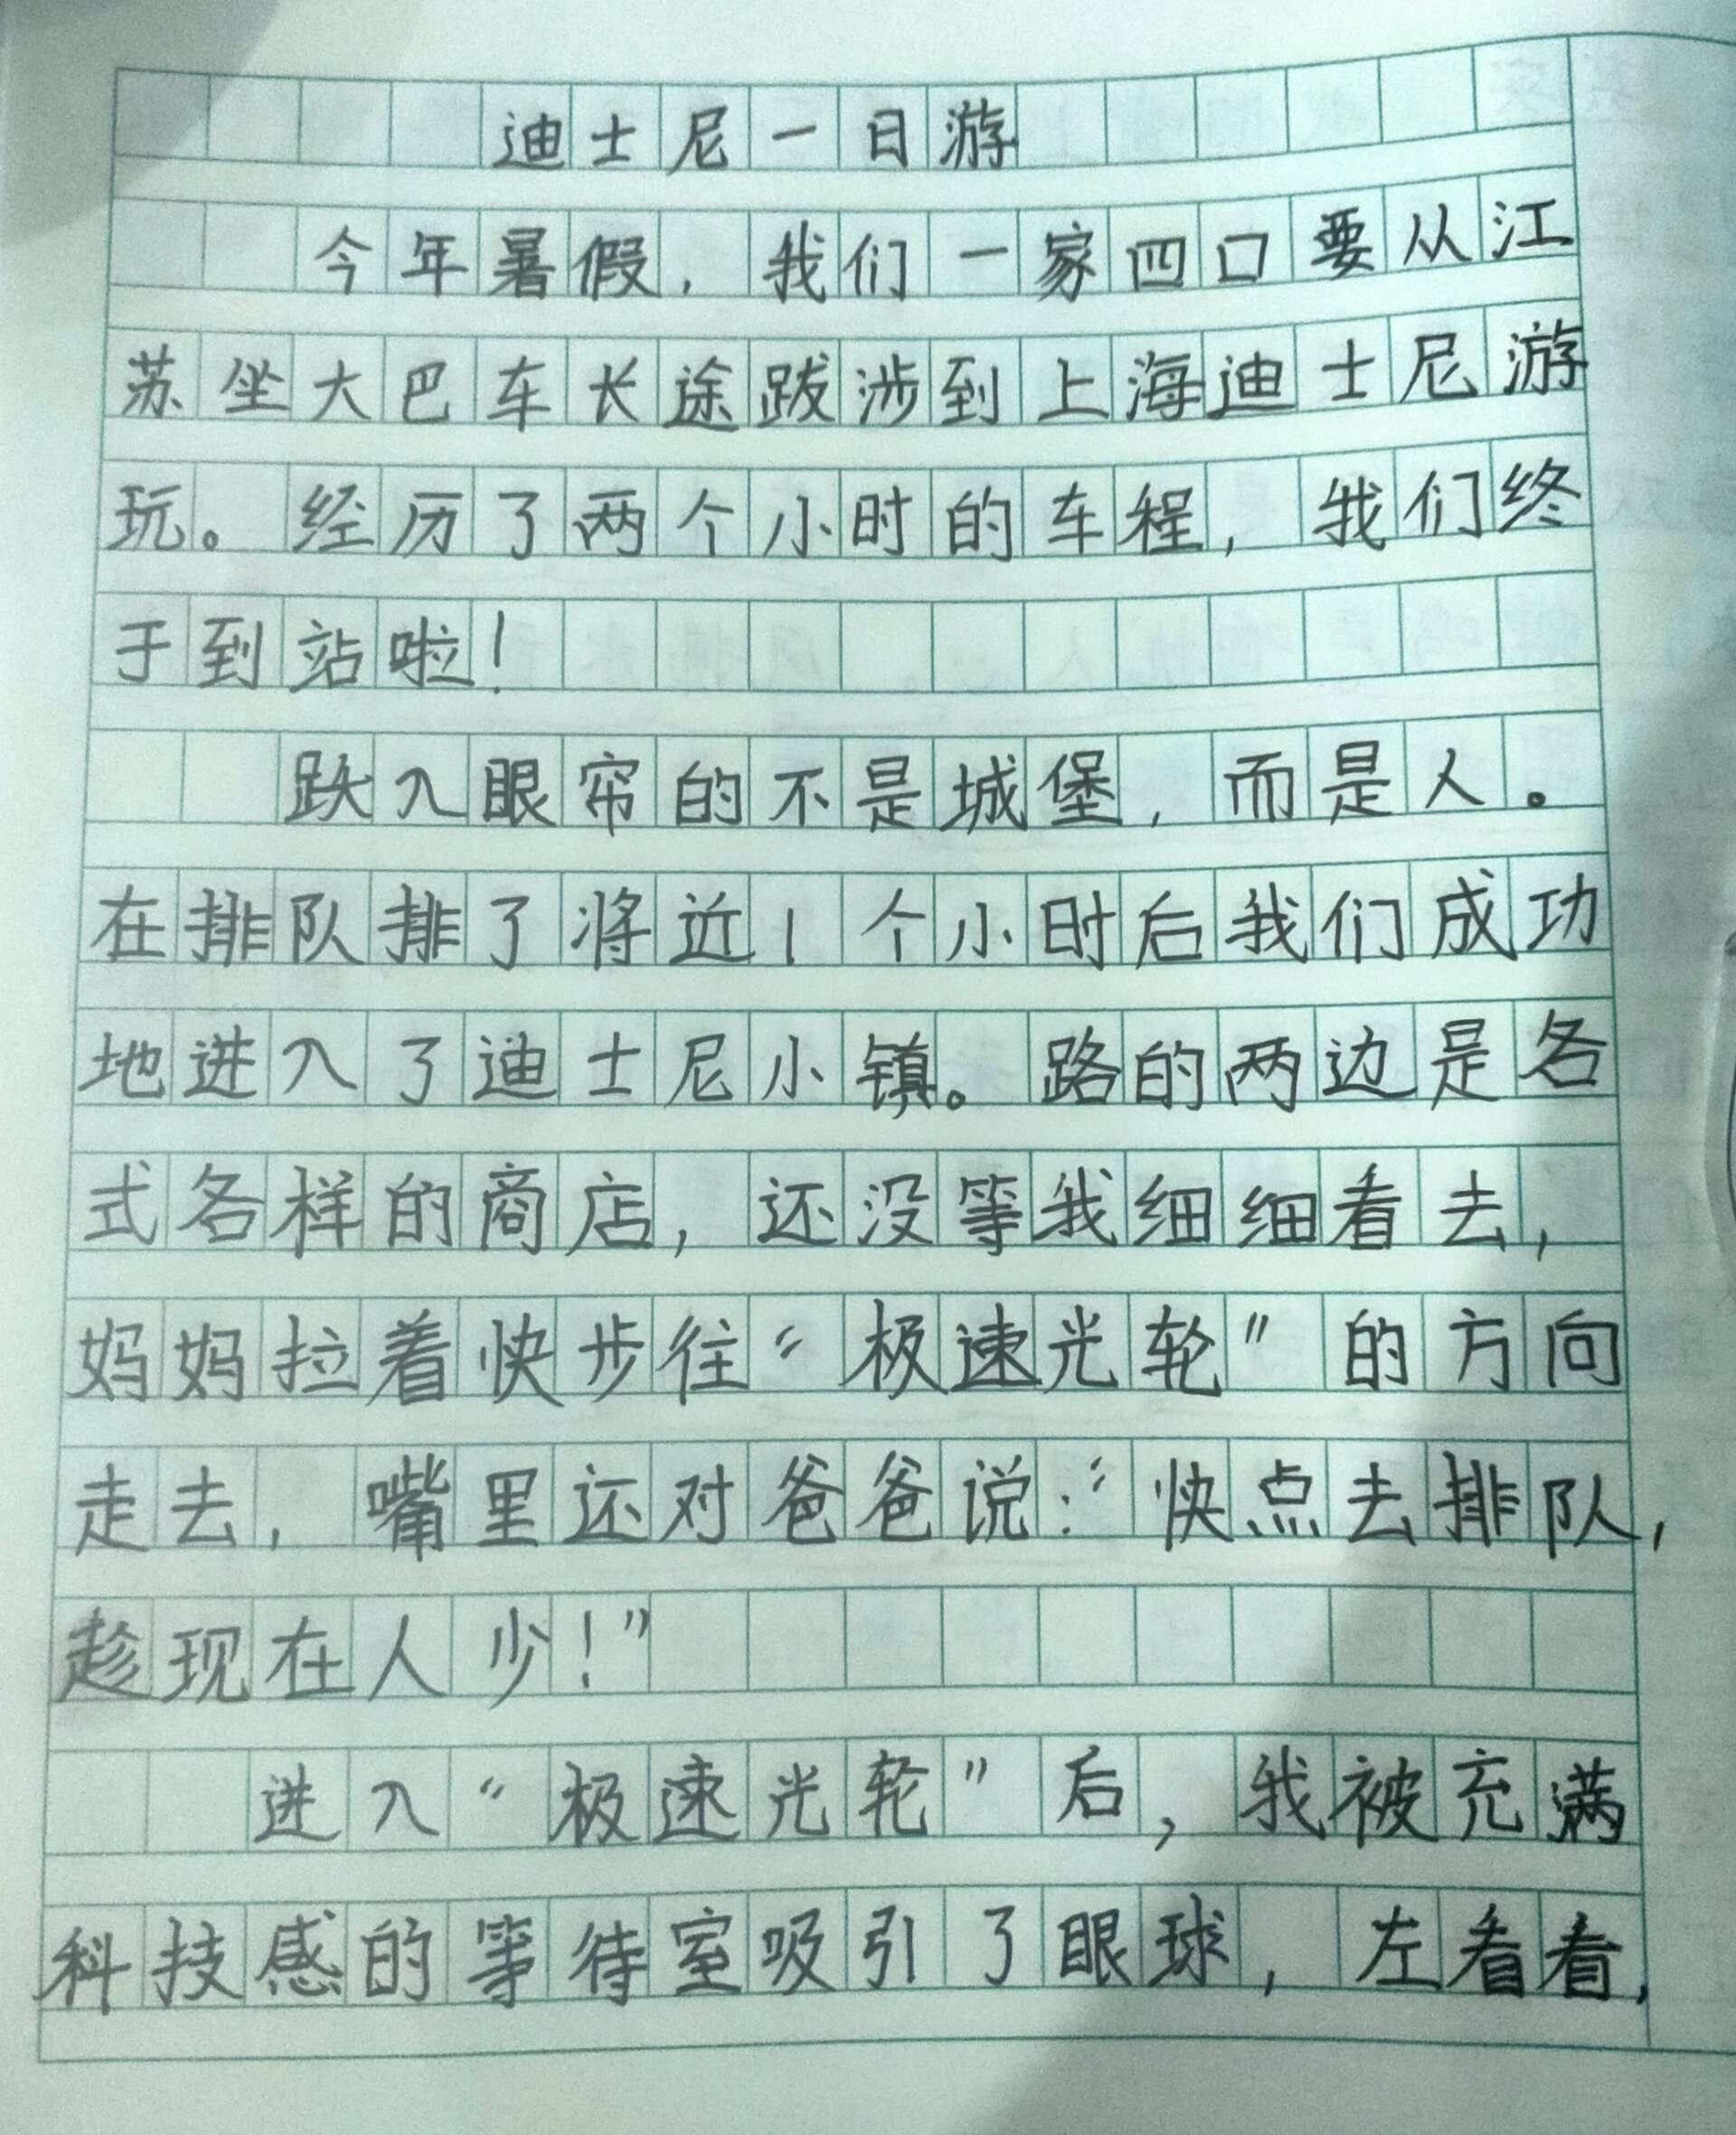 迪士尼一日游
今年暑假，我们一家四口要从江
苏坐大巴车长途跋涉到上海迪士尼游
玩。经历了两个小时的车程，我们终
于到站啦！
跃入眼帘的不是城堡，而是人。
在排队排了将近1个小时后我们成功
地进入了迪士尼小镇。路的两边是各
式各样的商店，还没等我细细看去，
妈妈拉着快步往“极速光轮”的方向
走去，嘴里还对爸爸说：“快点去排队，
趁现在人少！”
进入“极速光轮”后，我被充满
科技感的等待室吸引了眼球，左看看，